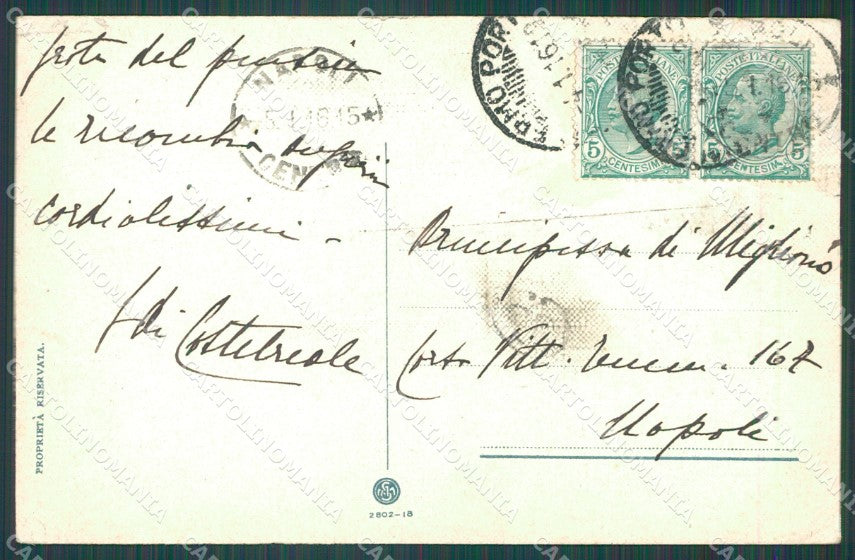 grata del pensiero
le ricambia auguri
cordialissimi -
di Castelreale
PROPRIETÀ RISERVATA.
NAPOLI
5.1.16 15
CENTRO
PORTO
POSTE ITALIANE
5 CENTESIMI 5
POSTE ITALIANE
5 CENTESIMI 5
Principessa di Migliano
Corso Vitt. Eman. 167
Napoli
2802-18
CARTOLINOMANIA